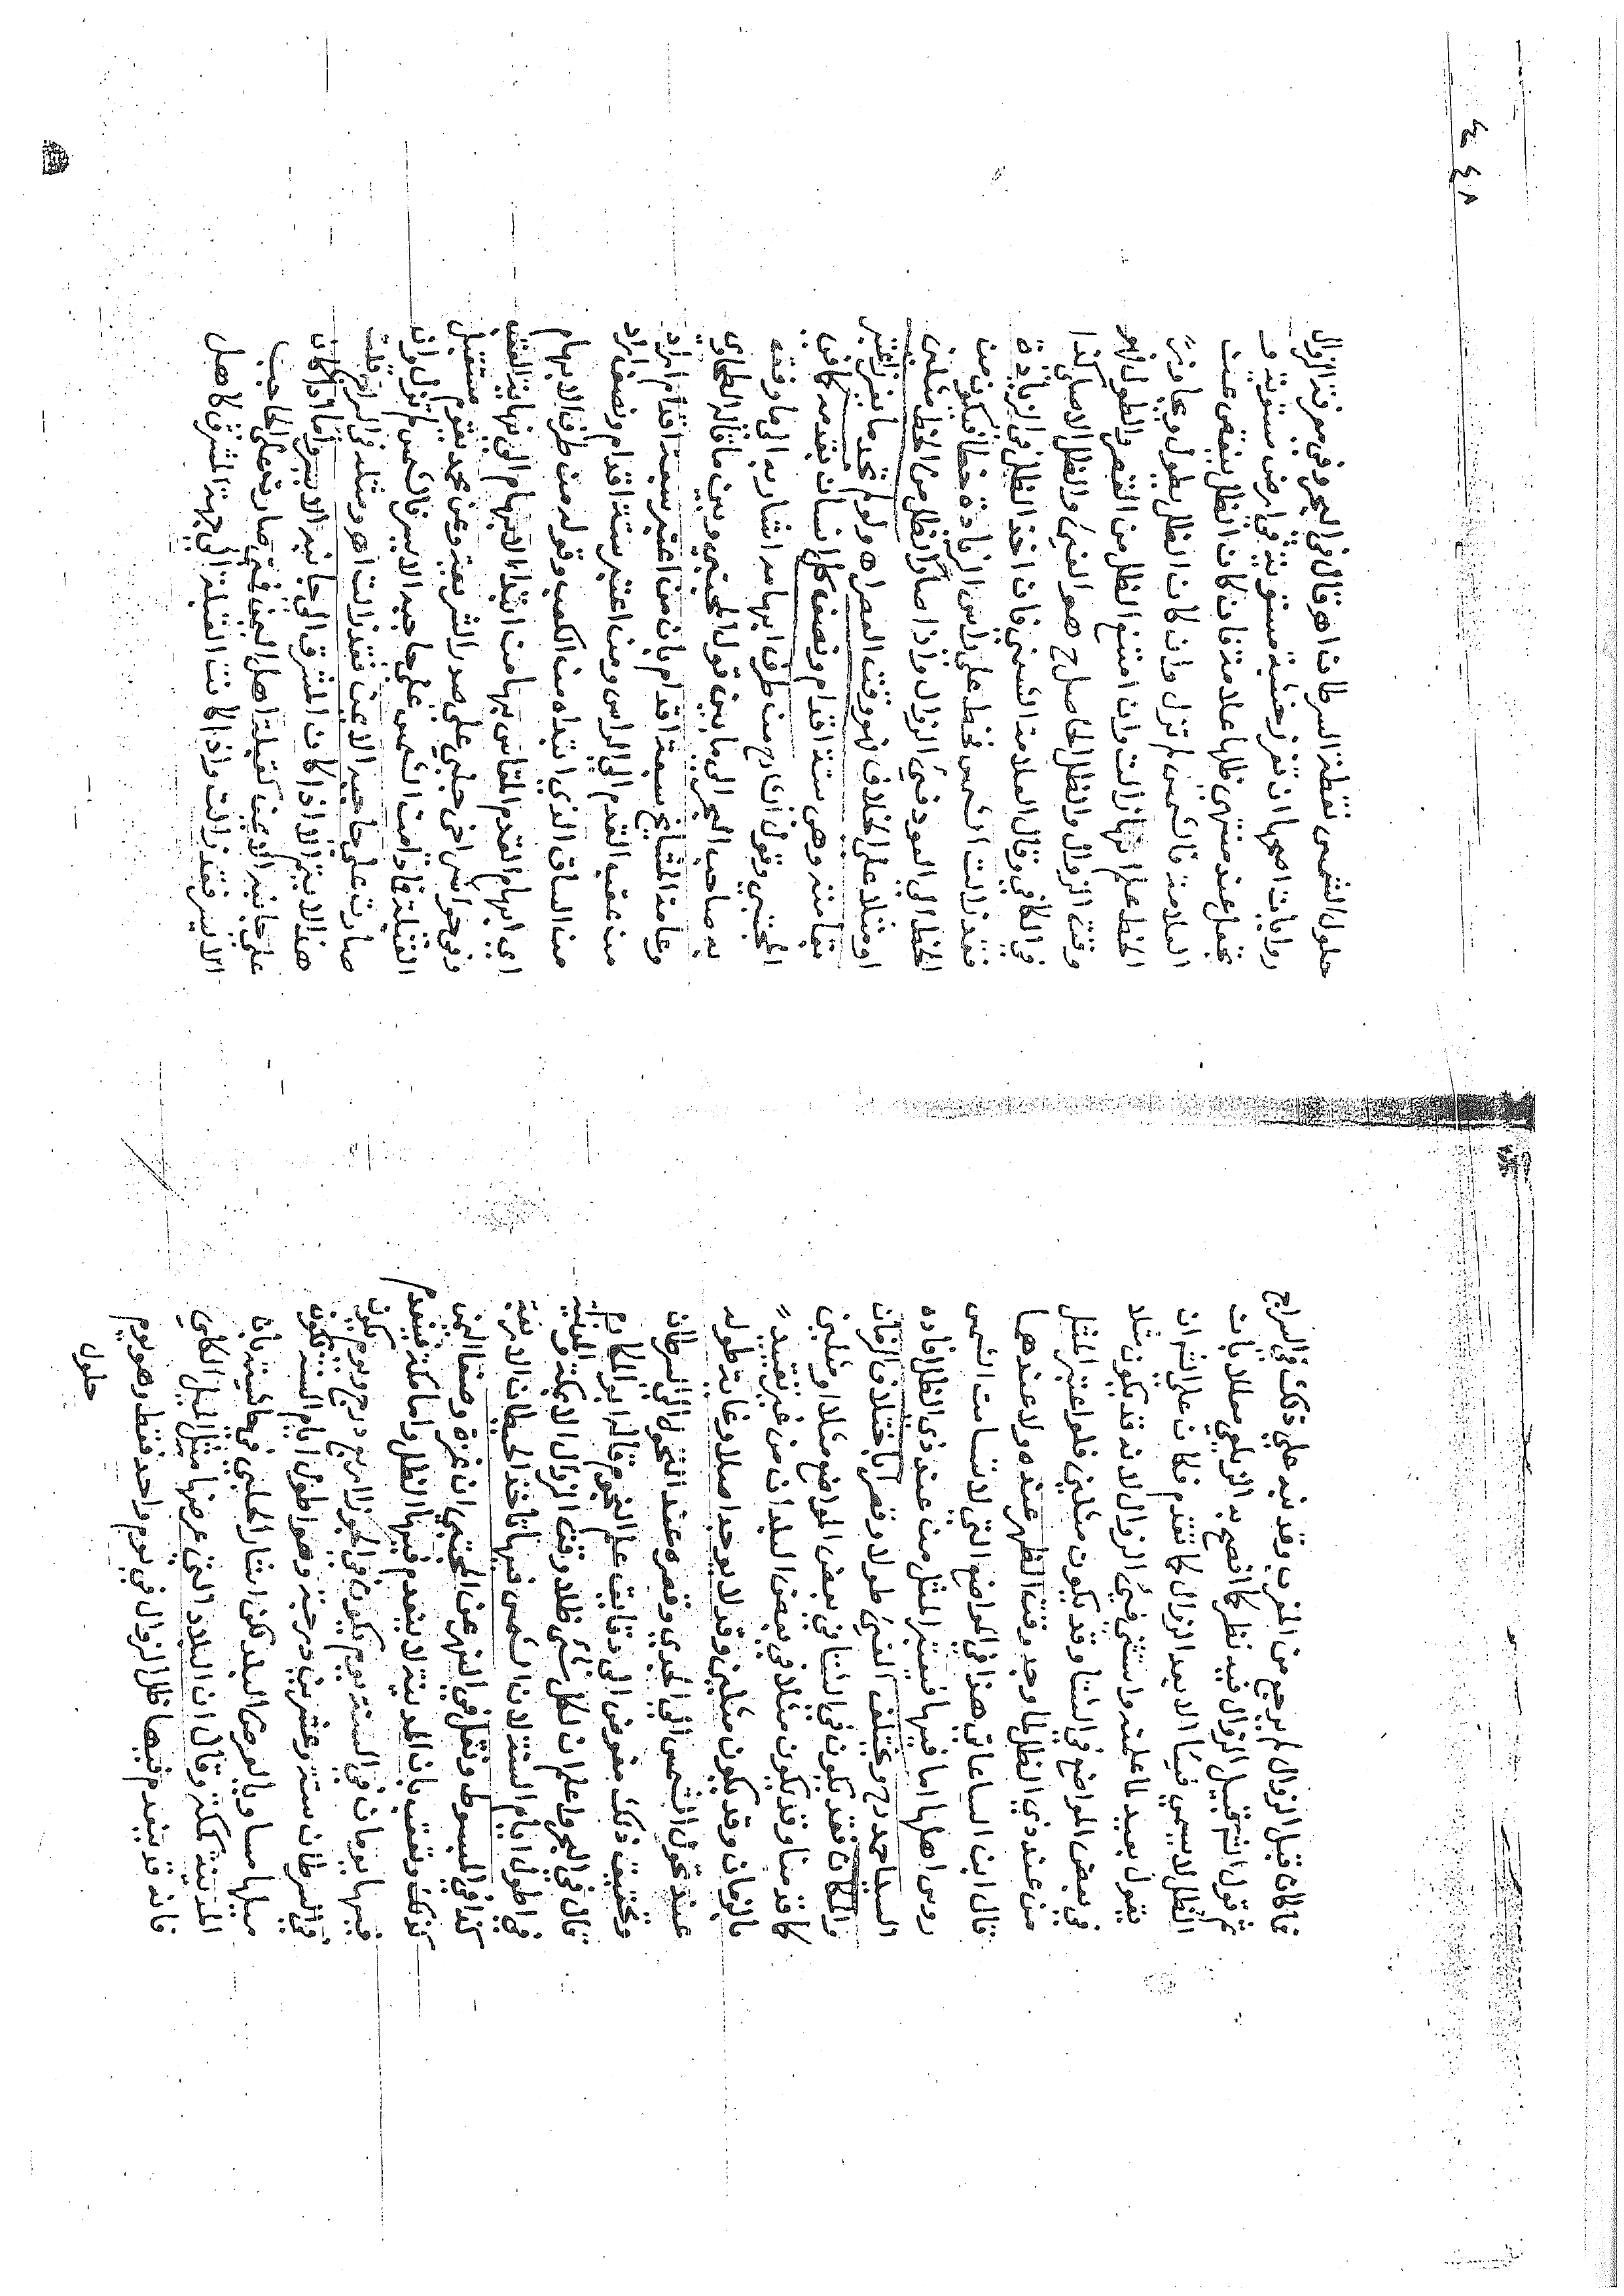 فما كان قبل الزوال لم يرجع من المغرب وقد نبه على ذلك في السراج
ثم قول الشرح قبيل الزوال فيه نظر كما افصح به الزيلعي معللا بان
الظل لا يسمى فيئا الا بعد الزوال كما تقدم فكان على الشرح ان
يقول بعيد لما علمته واستثنى فيئ الزوال لانه قد يكون مثلا
في بعض المواضع في الشتا وقد يكون مثلين فلو اعتبر المثل
من عند ذي الظل لما وجد وقت الظهر عنده ولا عندهما
قال ابن الساعاتي هذا في المواضع التي لا تسامت الشمس
روس اهلها اما فيها فيعتبر المثل من عند ذي الظل افاده
السيد احمد رح ويختلف الفيئ طولا وقصرا باختلاف الزمان
والمكان فقد يكون في الشتا في بعض المواضع مثلا او مثلين
كما قدمنا وقد يكون مثلا في بعض البلدان من غير تقييد
بالزمان وقد يكون مثلين وقد لا يوجد اصلا وغاية طوله
عند تحول الشمس الى الجدي وقصره عند التحول الى السرطان
وتحقيق ذلك مفوض الى دقايق علم النجوم قاله ابو المكارم
قال في البحر واعلم ان لكل شئ ظلا وقت الزوال الا بمكة والمدينة
في اطول ايام السنة لان الشمس فيها تاخذ الحيطان الاربعة
كذا في المبسوط ونقل في النهر عن المجتبى ان غزة وصنعا اليمن
كذلك وتعقب بان المدينة لا ينعدم فيها الظل واما مكة فينعدم
فيها يومان في السنة يوم يكون في الجوزا اربع درج ويوم يكون
في السرطان ستة وعشرين درجة وهو اطول ايام السنة تكون
ميلها مساويا لعرض البلد لكن اشار الحلبي في حاشيته بان
المدينة كمكة وقال ان البلاد التي عرضها مثل الميل الكلي
فانه قد ينعدم فيها ظل الزوال في يوم واحد فقط وهو يوم
حلول
٤٤٨
حلول الشمس نقطة السرطان اهـ قال في البحر وفي معرفة الزوال
روايات اصحها ان تغرز خشبة مستوية في ارض مستوية و
يجعل عند منتهى ظلها علامة فان كان الظل ينقص عن
العلامة فالشمس لم تزل وان كان الظل يطول ويجاوز
الخط علم انها زالت وان امتنع الظل من القصر والطول فهو
وقت الزوال والظل الحاصل ح هو الفيئ والظل الاصلي كذا
في الكافي وقال العلامة الشمني فان اخذ الظل في الزيادة
فقد زالت الشمس فخط على راس الزيادة خطا فيكون من
الخط الى العود فيئ الزوال واذا صار الظل من الخط مثلين
او مثلا على الخلاف فهو وقت العصر اهـ ولو لم تجد ما تغرز اعتبر
بقامته وهي ستة اقدام ونصف كل انسان بقدمه كما في
المجتبى وقول الشارح من طرف ابهامه اشار به الى ما وفقه
به صاحب البحر الى ما بين قول المجتبى وبين ما قاله الطحاوي
وعامة المشايخ سبعة اقدام بان من اعتبر سبعة اقدام اراد
من عقب القدم الى الراس ومن اعتبر ستة اقدام ونصف اراد
من الساق الذي ابتداه من الكعب وقوله من طرف الابهام
اي ابهام القدم المقاس بها من ابتداء الابهام الى نهاية العقب
وفي حواشي اخي جلبي على صدر الشريعة وعن محمد يقوم مستقبل
القبلة فما دامت الشمس على حاجبه الايسر فالشمس لم تزل وان
صارت على حاجبه الايمن فقد زالت اهـ ومثله في السراج قلت
هذا لا يتم الا اذا كان المشرق الى جانبه الايسر واما اذا كان
على جانبه الايمن كقبلة اهل اليمن فمتى صارت على الحاجب
الايسر فقد زالت واذا كانت القبلة الى جهة المشرق كاهل